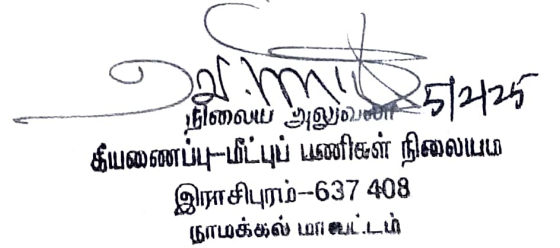 5/2/25
நிலைய அலுவலர்
தீயணைப்பு-மீட்புப் பணிகள் நிலையம்
இராசிபுரம்-637 408
நாமக்கல் மாவட்டம்